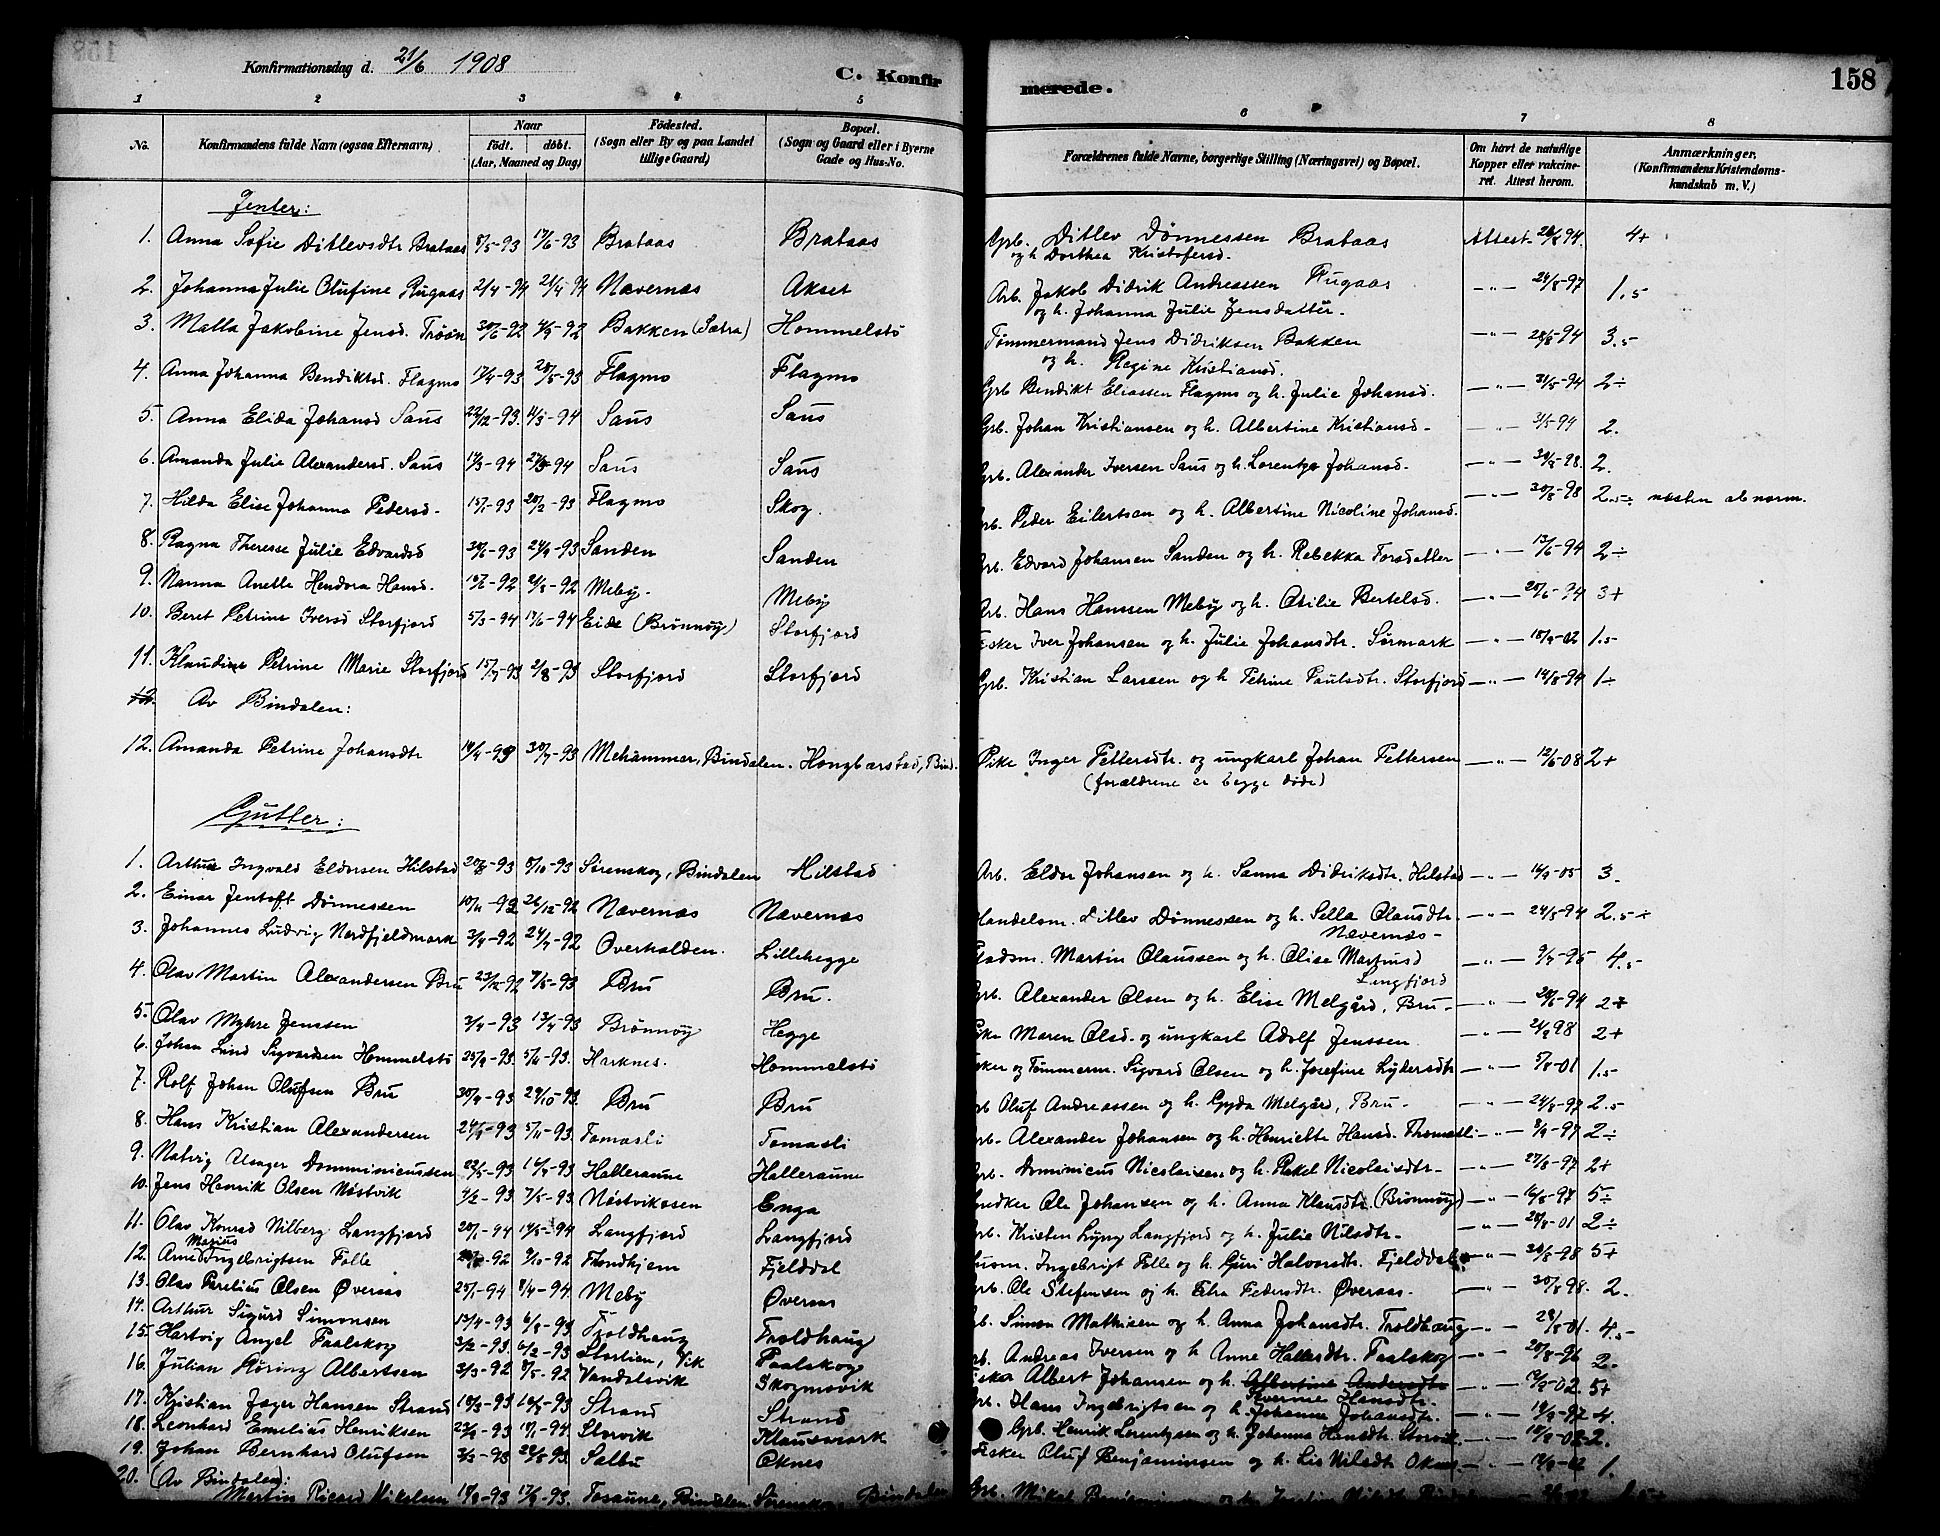 Konfirmationsdag d. 21/6 1908
C. Konfirmerede.
158
1 2 3 4 5 6 7 8
No. Konfirmandens fulde Navn (ogsaa Efternavn) Naar født. døbt. (Aar, Maaned og Dag) Fødested. (Sogn eller By og paa Landet tillige Gaard) Bopæl. (Sogn og Gaard eller i Byerne Gade og Hus-No. Forældrenes fulde Navne, borgerlige Stilling (Næringsvei) og Bopæl. Om havt de naturlige Kopper eller vakcineret. Attest herom. Anmærkninger. (Konfirmandens Kristendomskundskab m. V.)
Jenter:
1. Anna Sofie Ditlevsdtr Brataas 8/5-93 17/6-93 Brataas Brataas Grb. Ditlev Dønnessen Brataas og h Dorthea Kristofersd. Attest 94. 4+
2. Johanna Julie Olufine Rugaas 2/4-94 21/4-94 Nævernæs Akset Arb. Jakob Didrik Andreassen Rugaas og h. Johanna Julie Jensdatter. -"- 24/8-97 1.5
3. Malla Jakobine Jensd. Trøan 30/6-92 4/9-92 Bakken (Sætra) Hommelstø Tømmermand Jens Didriksen Bakken og h. Regine Kristiansd. -"- 28/8-94 3.5
4. Anna Johanna Bendiktsd. Flagmo 17/4-93 28/5-93 Flagmo Flagmo Grb Bendikt Eliassen Flagmo og h. Julie Johansd. -"- 31/5-94 2÷
5. Anna Elida Johansd Saus 22/12-93. 11/3-94 Saus Saus Grb. Johan Kristiansen og h. Albertine Kristiansd- -"- 31/5-94 2.
6. Amanda Julie Alexandersd. Saus 17/3-94 94 Saus Saus Grb. Alexander Iversen Saus og h. Lorentze Johansd- -"- 98. 2.
7. Hilda Elise Johanna Pedersd. 15/1-93 20/2-93 Flagmo Skog. Grb. Peder Eilertsen og h. Albertine Nicoline Johansd. -"- 30/8-98 2.5÷ næsten abnorm.
8. Ragna Therese Julie Edvardsd 93 24/9-93 Sanden Sanden Grb. Edvard Johansen Sanden og h. Rebekka Torsdatter -"- 13/6-94 2÷
9. Nanna Anette Hendora Hansd. 92 21/8-92 Meby. Meby Arb. Hans Hanssen Meby og h. Otilie Bertelsd. -"- 94 3+
10. Beret Petrine Iversd Storfjord 5/3-94 17/6-94 Eide (Brønnøy) Storfjord Fisker Iver Johansen og h. Julie Johansdtr. Sørmark -"- 15/9-02 1.5
11. Klaudine Petrine Marie Storfjord 15/7-93 2/8-93 Storfjord Storfjord Grb. Kristian Larssen og h Petrine Paulsdtr. Storfjord -"- 14/8-94 1÷
Av Bindalen:
12. Amanda Petrine Johansdtr 14/4-93 30/7-93 Mehammer, Bindalen. Hongbarstad, Bind. Pike Inger Pettersdtr. og ungkarl Johan Pettersen (forældrene er begge døde) -"- 12/6-08 2+
Gutter:
1. Arthur Ingvald Eldorsen Hilstad 20/8-93 8/10-93 Sørenskog, Bindalen Hilstad Arb. Eldor Johansen og h. Sanna Didriksdtr. Hilstad -"- 14/9-05 3.
2. Einar Jentoft Dønnessen 10/11-92 26/12-92 Nævernæs Nævernæs Handelsm. Ditlev Dønnessen og h. Sella Olausdtr. Nævernæs- -"- 24/5-94 2.5÷
3. Johannes Ludvig Nordfjeldmark 3/4-92 24/7-92 Overhalden. Lillehegge Gaadsm. Martin Olaussen og h. Olise Martinusd Langfjord -"- 9/7-95 4.5
4. Olav Martin Alexandersen Bru 23/12-92 7/5-93 Bru Bru. Grb. Alexander Olsen og h. Elise Melgård, Bru- -"- 20/6-94 2÷
5. Olav Myhre Jenssen 3/4-93 13/4-93 Brønnøy Hegge Pike Maren Olsd. og ungkarl Adolf Jenssen. -"- 98 2+
6. Johan Lind Sigvardsen Hommelstø 25/9-93. 5/11-93. Harknes. Hommelstø Fisker og Tømmerm. Sigvard Olsen og h. Josefine Lydersdtr -"- 5/8-01 1.5
7. Rolf Johan Olufsen Bru 30/9-93 29/10-93. Bru Bru Grb Oluf Andreassen og h. Gyda Melgård, Bru- -"- 24/8-97 2.5
8. Hans Kristian Alexandersen 93 5/11-93. Tomasli Tomasli Grb. Alexander Johansen og h. Henriette Hansd. Thomasli -"- 97 2÷
9. Natvig Domminicussen 22/5-93 93 Halleraune Halleraune Grb. Dominicus Nicolaisen og h. Rakel Nicolaisdtr- -"- 27/8-97 2+
10. Jens Henrik Olsen Nøstvik 3/2-93 7/5-93 Nøstvikosen Enga Snedker Ole Johansen og h. Anna Klausdtr (Brønnøy) -"- 97 5÷
11. Olav Konrad Nilberg Langfjord 20/1-94 94 Langfjord Langfjord Grb. Kristen Lyng Langfjord og h. Julie Nilsdtr- -"- 01 2÷
12. Arne Marius Ingebrigtsen Folle 92 9/10-92 Trondhjem Fjelddal Husm. Ingebrigt Folle og h. Guri Halvorsdtr. Fjelddal. -"- 30/8-98 5+
13. Olav Olsen Øveraas 25/1-94 8/4-94 Meby Øveraas Grb. Ole Stefensen og h. Pedersdtr. Øveraas. -"- 30/8 98. 2.
14. Arthur Sigurd Simonsen 13/4-93 6/8-93 Troldhaug Troldhaug Grb. Simon Mathisen og h. Anna Johansdtr. Troldhaug -"- 01. 4.5
15. Hartvig Angel Paalskog 3/2-93. 6/2-93 Storlien, Vik Paalskog Arb. Andreas Iversen og h Anne Hallesdtr. Paalskog -"- 20/8-96 2.
16. Julian Høring Albertsen 3/3-92 8/5-92 Vandalsvik Skogmovik Fisker Albert Johansen og h. Albertine Andersdtr Hansdtr. -"- 02. 5+
17. Kristian Jager Hansen Strand 93 93 Strand Strand Grb. Hans Ingebrigtsen og h Johanna Johansdtr. -"- 97 4.
18. Leonhard Emelius Henriksen 93 94 Storvik Klausmark Grb. Henrik Lorentzen og h. Johanna Hansdtr. Storvik. -"- 02. 2.
19. Johan Bernhard Olufsen 93 93. Salbu Oknes Fisker Oluf Benjaminsen og h. Lis Nilsdtr Oknes. -"- 1.
20. (Av Bindalen):
Martin Nikolsen 93 93. Tosaune, Bindalen Sørenskog Bindalen Grb. Mikal